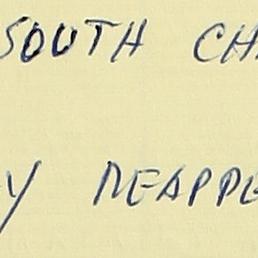 SOUTH CH
Y REAPPE